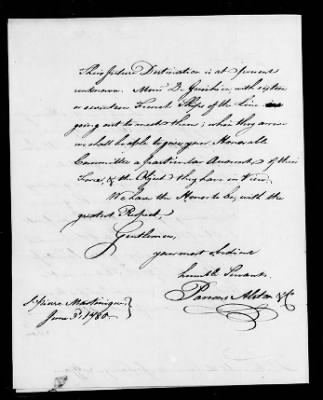 Their future Destination is at present
unknown. Monsr D. Guichen, with sixteen
or seventeen French Ships of the Line is
going out to meet them; when they arrive
we shall be able to give your Honorable
Committee a particular Account, of their
Force, & the Object they have in View.
We have the Honor to be, with the
greatest Respect,
Gentlemen,
your most Obedient
humble Servants
Parsons Alston & Co
St Pierre Martinique
June 3d 1780